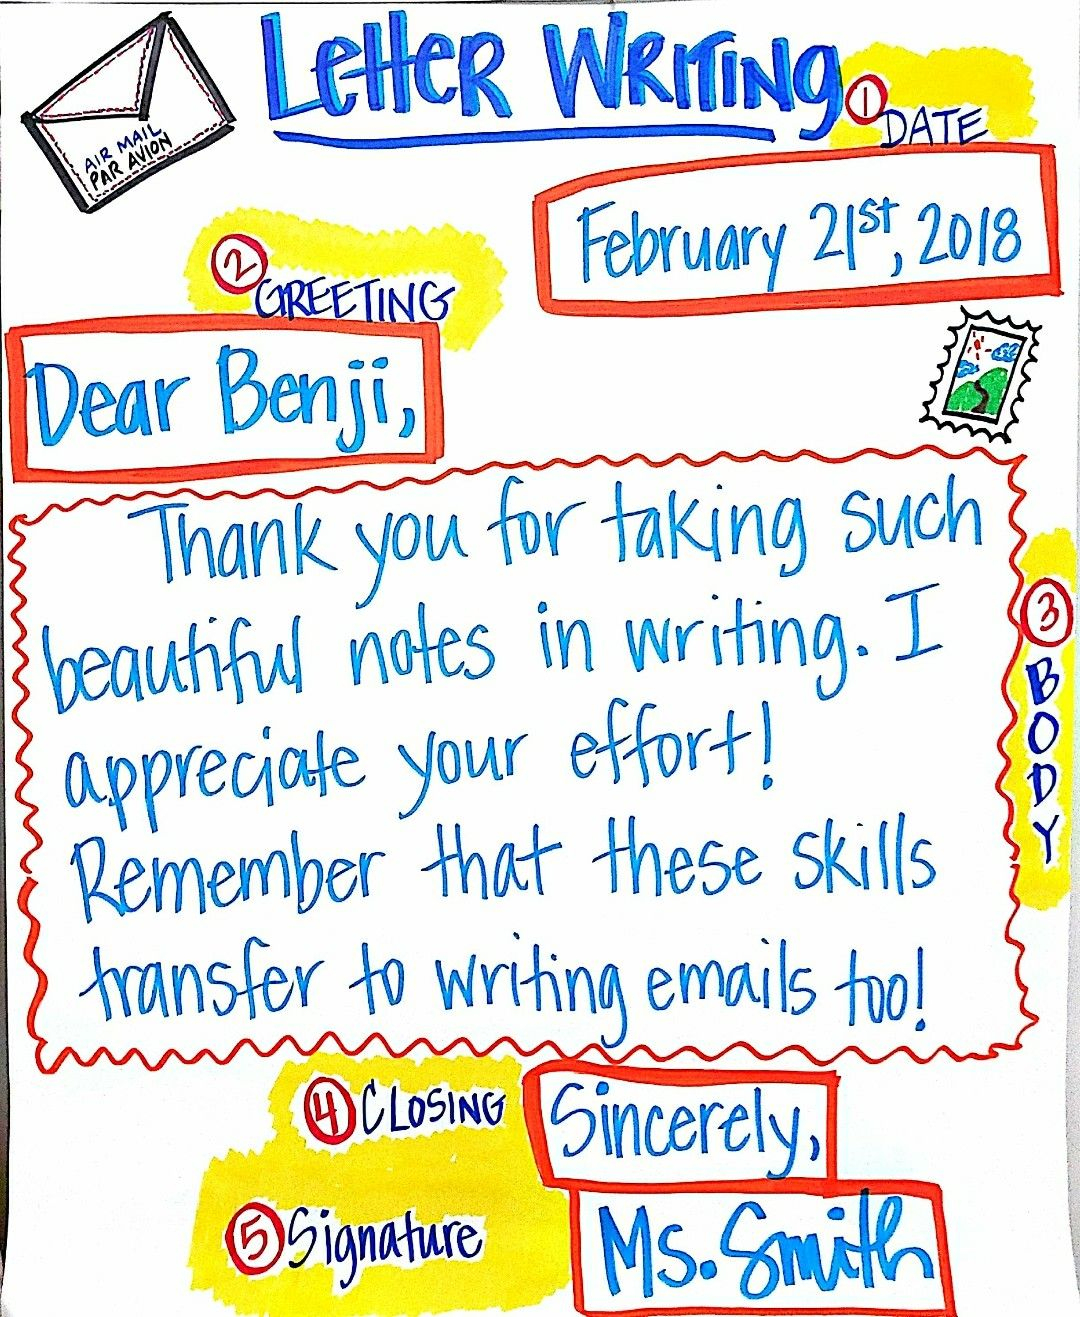 LETTER WRITING
AIR MAIL
PAR AVION
1 DATE
February 21st, 2018
2 GREETING
Dear Benji,
Thank you for taking such
beautiful notes in writing. I
appreciate your effort!
Remember that these skills
transfer to writing emails too!
3 BODY
4 CLOSING
Sincerely,
5 Signature
Ms. Smith